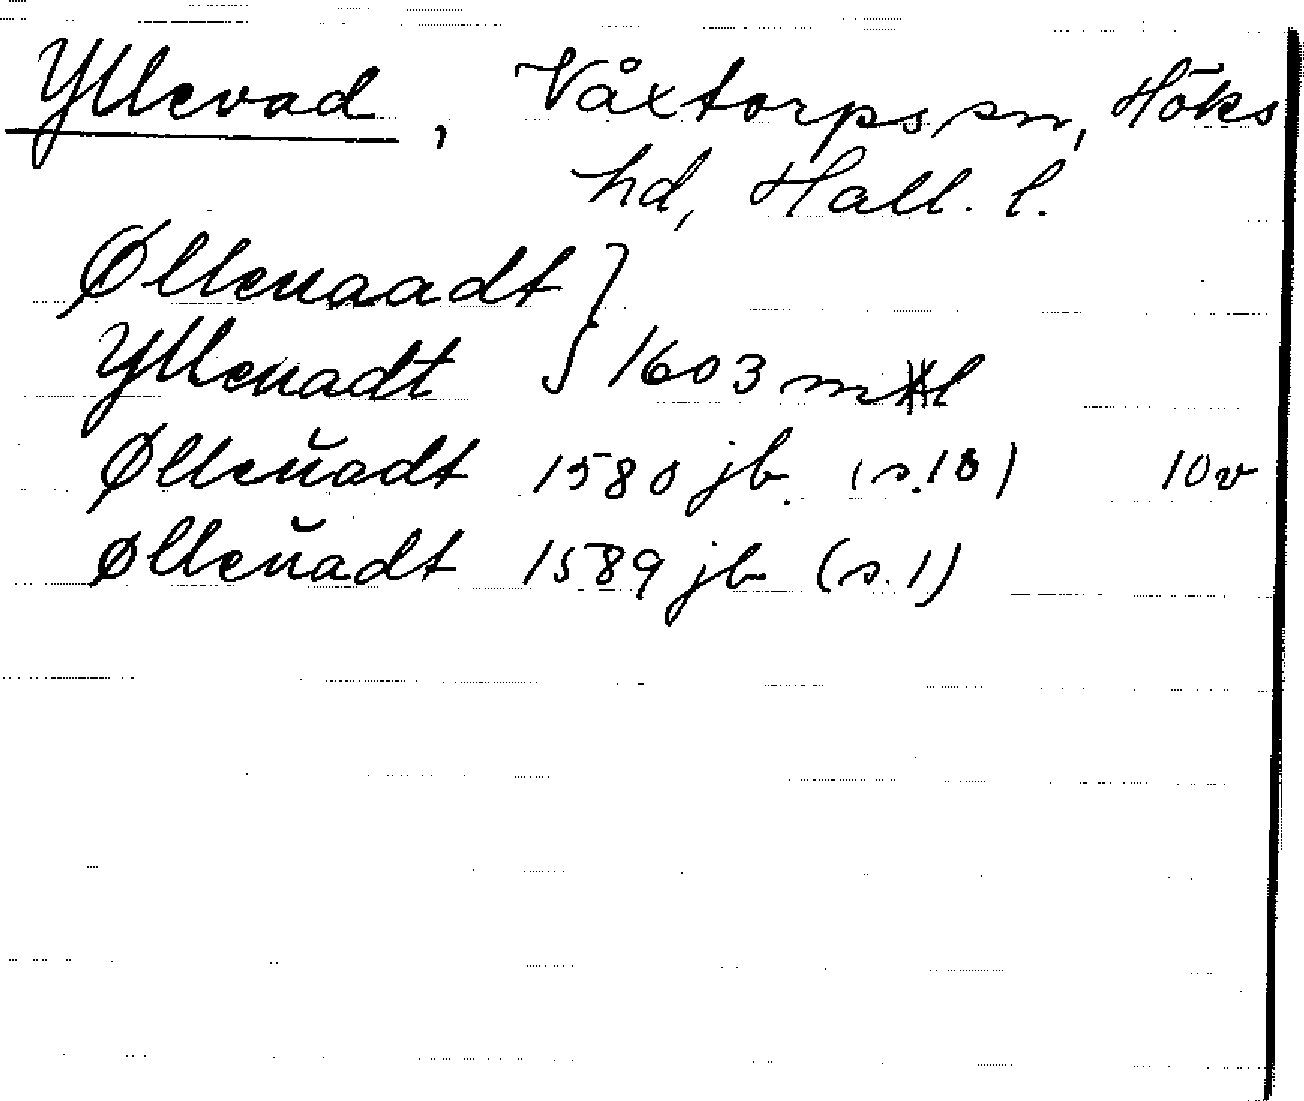 Yllevad, Våxtorps sn, Höks
hd, Hall. l.
Øllenaadt }
Yllenadt } 1603 ml
Ølleŭadt 1580 jb. (s. 18) 10v
Ølleŭadt 1589 jb (s. 1)